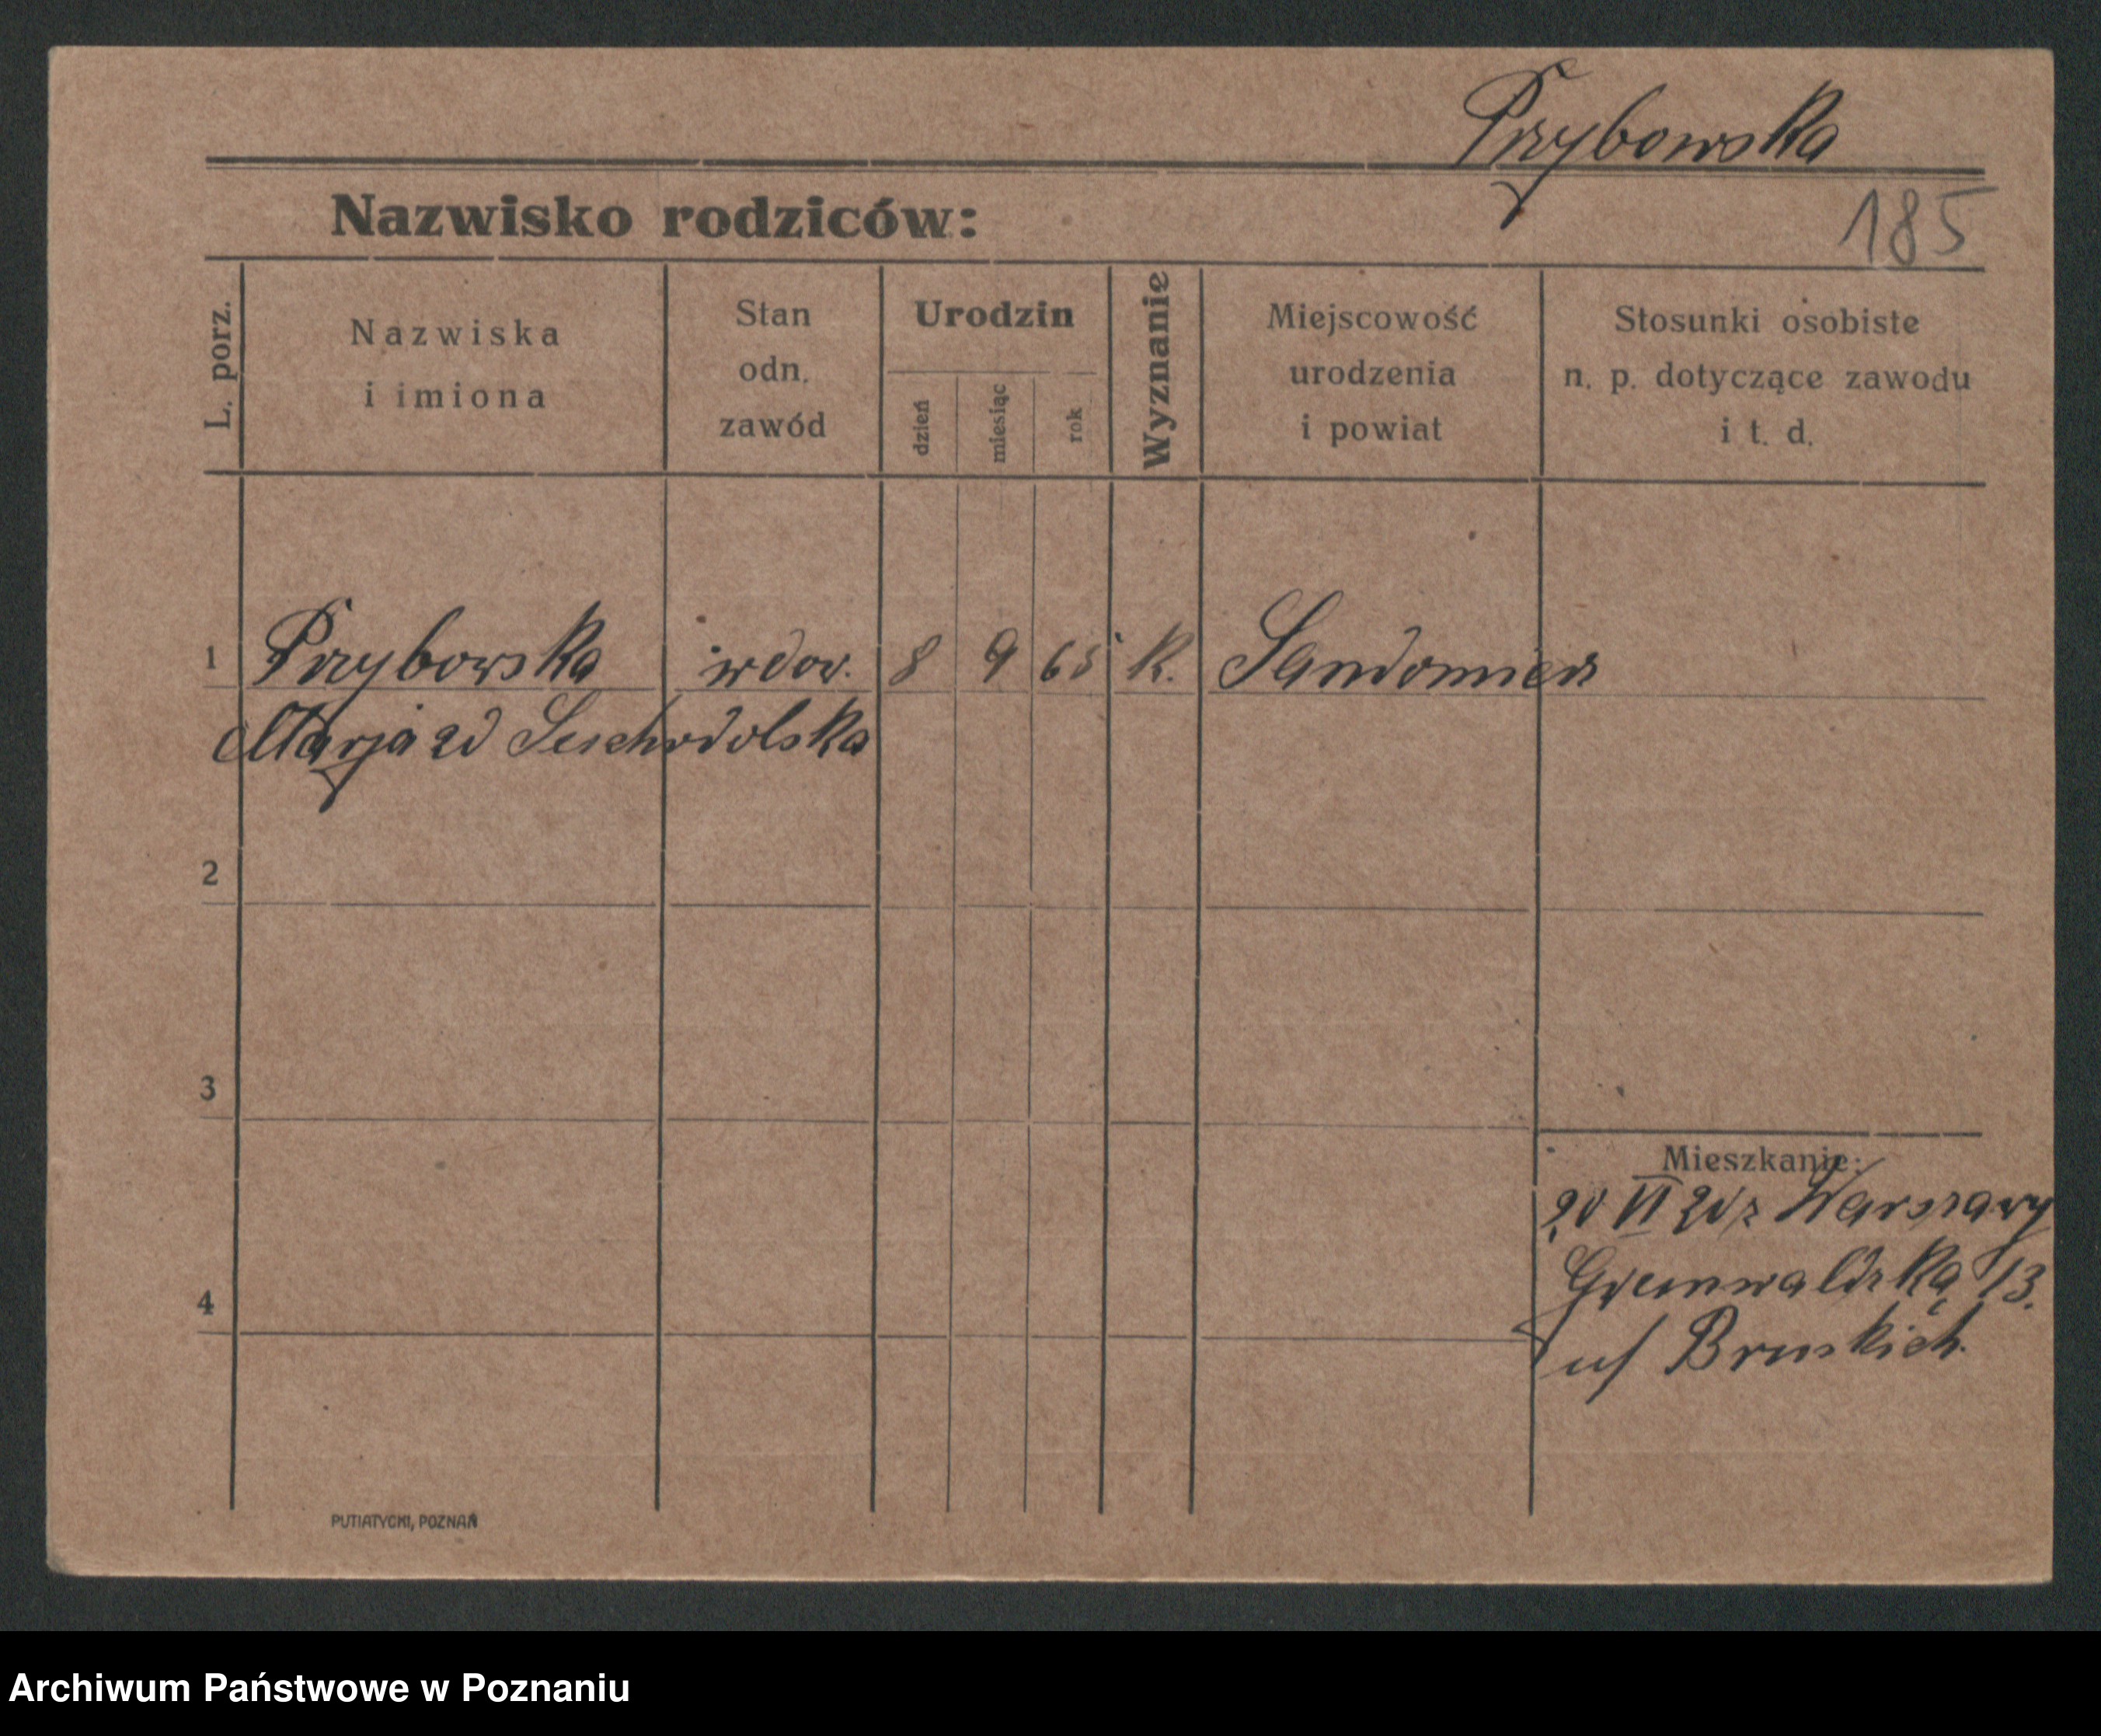 Przybowska
185
Nazwisko rodziców:
L. porz.
Nazwiska i imiona
Stan odn. zawód
Urodzin
dzień
miesiąc
rok
Wyznanie
Miejscowość urodzenia i powiat
Stosunki osobiste n. p. dotyczące zawodu i t. d.
1 Przybowska wdow. 8 9 65 K. Sandomierz
Marja
2
3
Mieszkanie:
20 VI 20 z Warszawy
Grunwaldzka 13.
4
u/
PUTIATYCKI, POZNAŃ
Archiwum Państwowe w Poznaniu